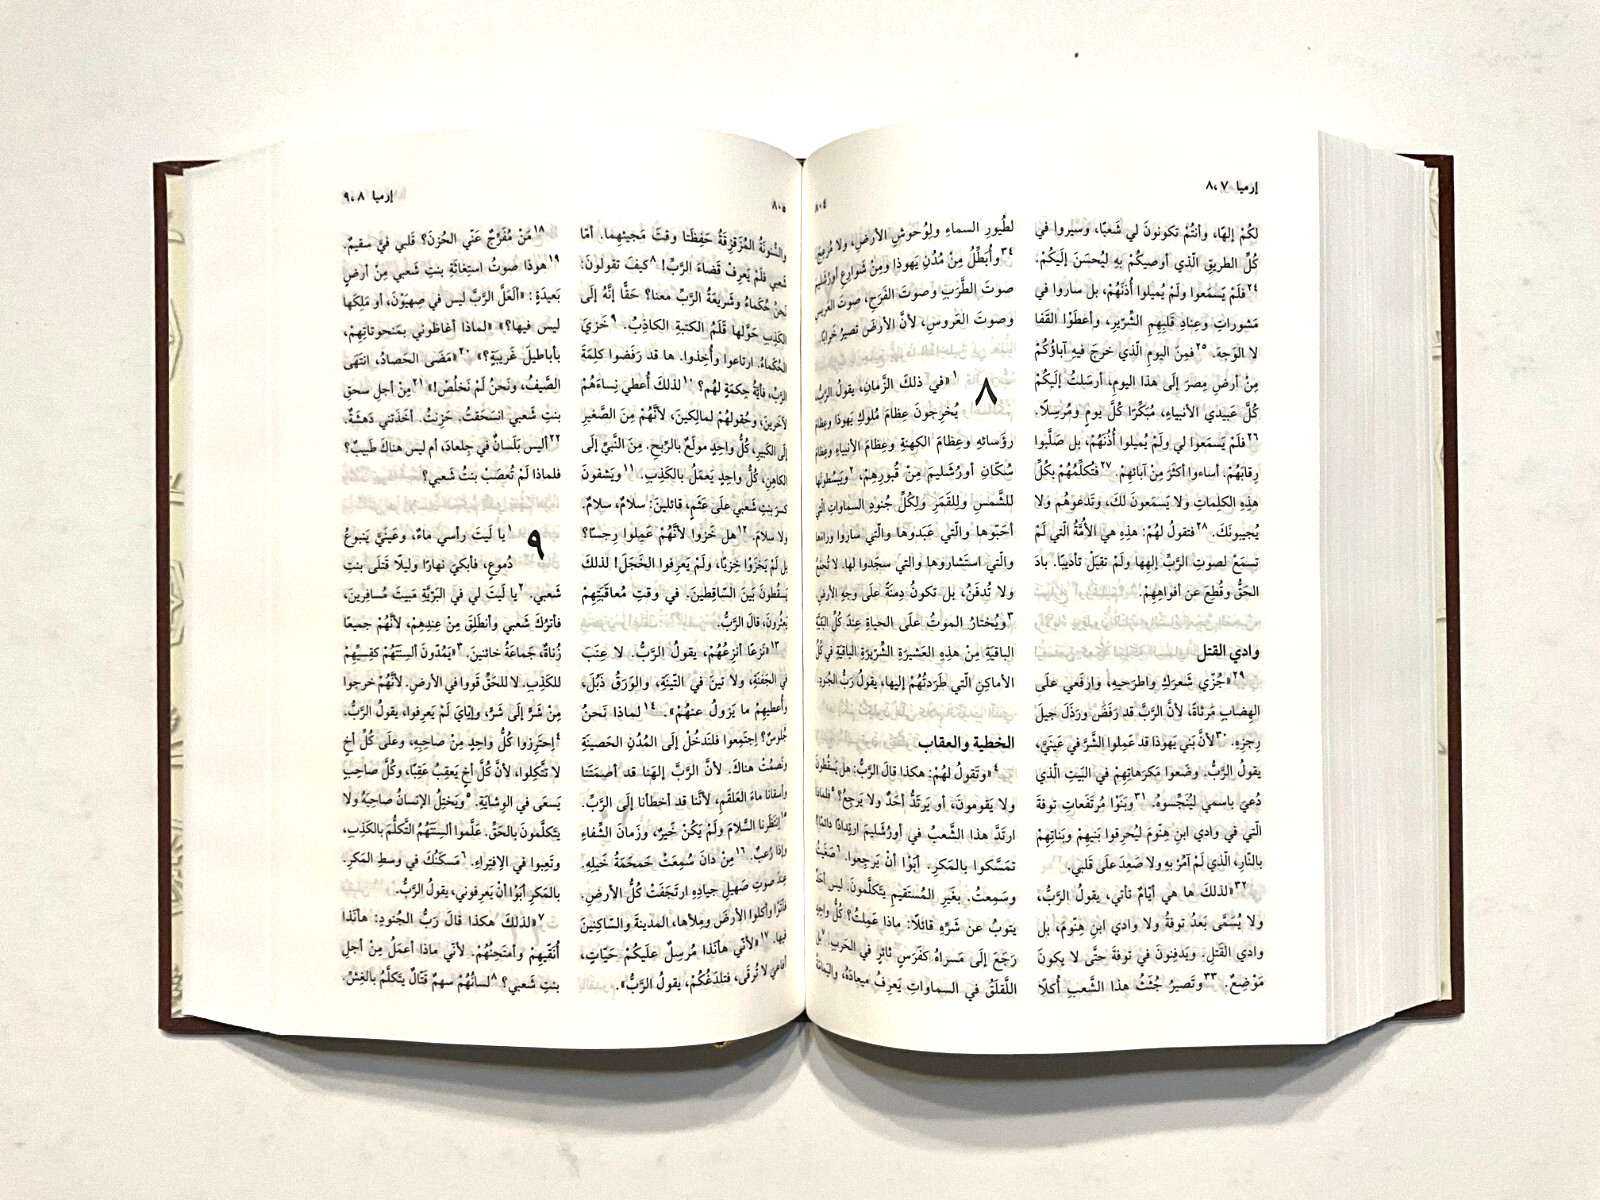 إرميا ٧، ٨
٨٠٤
لكُمْ إلهًا، وأنتُمْ تكونونَ لي شَعبًا، وسيروا في
كُلِّ الطريقِ الّذي أوصيكُمْ بهِ ليُحسَنَ إلَيكُمْ.
٢٤فلَمْ يَسمَعوا ولَمْ يُميلوا أُذنَهُمْ، بل ساروا في
مَشوراتِ وعِنادِ قَلبِهِمِ الشِّرّيرِ، وأعطَوْا القَفا
لا الوَجهَ. ٢٥فمِنَ اليومِ الّذي خرجَ فيهِ آباؤُكُمْ
مِنْ أرضِ مِصرَ إلَى هذا اليومِ، أرسَلتُ إلَيكُمْ
كُلَّ عَبيدي الأنبياءِ، مُبَكِّرًا كُلَّ يومٍ ومُرسِلًا.
٢٦فلَمْ يَسمَعوا لي ولَمْ يُميلوا أُذُنَهُمْ، بل صَلَّبوا
رِقابَهُمْ. أساءوا أكثَرَ مِنْ آبائهِمْ. ٢٧فتُكلِّمُهُمْ بكُلِّ
هذِهِ الكلِماتِ ولا يَسمَعونَ لكَ، وتَدعوهُم ولا
يُجيبونَكَ. ٢٨فتقولُ لهُمْ: هذِهِ هي الأُمَّةُ الّتي لَمْ
تسمَعْ لصوتِ الرَّبِّ إلهِها ولَمْ تقبَلْ تأديبًا. بادَ
الحَقُّ وقُطِعَ عن أفواهِهِمْ.
وادي القتل
٢٩«جُزّي شَعرَكِ واطرَحيهِ، وارفَعي علَى
الهِضابِ مَرثاةً، لأنَّ الرَّبَّ قد رَفَضَ ورَذَلَ جيلَ
رِجزِهِ. ٣٠لأنَّ بَني يَهوذا قد عَمِلوا الشَّرَّ في عَينَيَّ،
يقولُ الرَّبُّ. وضَعوا مَكرَهاتِهِمْ في البَيتِ الّذي
دُعيَ باسمي ليُنَجِّسوهُ. ٣١وبَنَوْا مُرتَفَعاتِ توفَةَ
الّتي في وادي ابنِ هِنّومَ ليُحرِقوا بَنيهِمْ وبَناتِهِمْ
بالنّارِ، الّذي لَمْ آمُرْ بهِ ولا صَعِدَ علَى قَلبي.
٣٢«لذلكَ ها هي أيّامٌ تأتي، يقولُ الرَّبُّ،
ولا يُسَمَّى بَعدُ توفَةُ ولا وادي ابنِ هِنّومَ، بل
وادي القَتلِ. ويَدفِنونَ في توفَةَ حتَّى لا يكونَ
مَوْضِعٌ. ٣٣وتَصيرُ جُثَثُ هذا الشَّعبِ أُكلًا
لطُيورِ السماءِ ولِوُحوشِ الأرضِ، ولا مُزعِجَ.
٣٤وأُبَطِّلُ مِنْ مُدُنِ يَهوذا ومِنْ شَوارِعِ أورُشَليمَ
صوتَ الطَّرَبِ وصوتَ الفَرَحِ، صوتَ العَريسِ
وصوتَ العَروسِ، لأنَّ الأرضَ تصيرُ خَرابًا.
٨ ١«في ذلكَ الزَّمانِ، يقولُ الرَّبُّ،
يُخرِجونَ عِظامَ مُلوكِ يَهوذا وعِظامَ
رؤَسائهِ وعِظامَ الكهنةِ وعِظامَ الأنبياءِ وعِظامَ
سُكّانِ أورُشَليمَ مِنْ قُبورِهِمْ، ٢ويَبسُطونَها
للشَّمسِ وللقَمَرِ ولِكُلِّ جُنودِ السماواتِ الّتي
أحَبّوها والّتي عَبَدوها والّتي ساروا وراءَها
والّتي استَشاروها والّتي سجَدوا لها. لا تُجمَعُ
ولا تُدفَنُ، بل تكونُ دِمنَةً علَى وجهِ الأرضِ.
٣ويُختارُ الموتُ علَى الحياةِ عِندَ كُلِّ البَقيَّةِ
الباقيَةِ مِنْ هذِهِ العَشيرَةِ الشِّرّيرَةِ الباقيَةِ في كُلِّ
الأماكِنِ الّتي طَرَدتُهُمْ إليها، يقولُ رَبُّ الجُنودِ.
الخطية والعقاب
٤«وتَقولُ لهُمْ: هكذا قالَ الرَّبُّ: هل يَسقُطونَ
ولا يَقومونَ، أو يَرتَدُّ أحَدٌ ولا يَرجِعُ؟ ٥فلماذا
ارتَدَّ هذا الشَّعبُ في أورُشَليمَ ارتِدادًا دائمًا؟
تمَسَّكوا بالمَكرِ. أبَوْا أنْ يَرجِعوا. ٦صَغَيتُ
وسَمِعتُ. بغَيرِ المُستَقيمِ يتَكلَّمونَ. ليس أحَدٌ
يتوبُ عن شَرِّهِ قائلًا: ماذا عَمِلتُ؟ كُلُّ واحِدٍ
رَجَعَ إلَى مَسراهُ كفَرَسٍ ثائرٍ في الحَربِ. ٧بل
اللَّقلَقُ في السماواتِ يَعرِفُ ميعادَهُ، واليَمامَةُ
إرميا ٨، ٩
٨٠٥
والسُّنونَةُ المُزَقزِقَةُ حَفِظَتا وقتَ مَجيئهِما. أمّا
شَعبي فلَمْ يَعرِفْ قَضاءَ الرَّبِّ! ٨كيفَ تقولونَ:
نَحنُ حُكَماءُ وشَريعَةُ الرَّبِّ معنا؟ حَقًّا إنَّهُ إلَى
الكَذِبِ حَوَّلها قَلَمُ الكتبةِ الكاذِبُ. ٩خَزيَ
الحُكَماءُ. ارتاعوا وأُخِذوا. ها قد رَفَضوا كلِمَةَ
الرَّبِّ، فأيَّةُ حِكمَةٍ لهُم؟ ١٠لذلكَ أُعطي نِساءَهُمْ
لآخَرينَ، وحُقولهُمْ لمالِكينَ، لأنَّهُمْ مِنَ الصَّغيرِ
إلَى الكَبيرِ، كُلُّ واحِدٍ مولَعٌ بالرِّبحِ. مِنَ النَّبيِّ إلَى
الكاهِنِ، كُلُّ واحِدٍ يَعمَلُ بالكَذِبِ. ١١ويَشفونَ
كسرَ بنتِ شَعبي علَى عَثَمٍ، قائلينَ: سلامٌ، سلامٌ.
ولا سلامَ. ١٢هل خَزوا لأنَّهُمْ عَمِلوا رِجسًا؟
بل لَمْ يَخزَوْا خِزيًا، ولَمْ يَعرِفوا الخَجَلَ! لذلكَ
يَسقُطونَ بَينَ السّاقِطينَ. في وقتِ مُعاقَبَتِهِمْ
يَعثُرونَ، قالَ الرَّبُّ.
١٣«نَزعًا أنزِعُهُمْ، يقولُ الرَّبُّ. لا عِنَبَ
في الجَفنَةِ، ولا تينَ في التّينَةِ، والوَرَقُ ذَبُلَ،
وأُعطيهِمْ ما يَزولُ عنهُمْ». ١٤لماذا نَحنُ
جُلوسٌ؟ اِجتَمِعوا فلنَدخُلْ إلَى المُدُنِ الحَصينَةِ
ونَصمُتْ هناكَ. لأنَّ الرَّبَّ إلهَنا قد أصمَتَنا
وأسقانا ماءَ العَلقَمِ، لأنَّنا قد أخطأنا إلَى الرَّبِّ.
١٥اِنتَظَرنا السَّلامَ ولَمْ يَكُنْ خَيرٌ، وزَمانَ الشِّفاءِ
وإذا رُعبٌ. ١٦مِنْ دانَ سُمِعَتْ حَمحَمَةُ خَيلِهِ.
عِندَ صوتِ صَهيلِ جيادِهِ ارتَجَفَتْ كُلُّ الأرضِ.
فأتَوْا وأكلوا الأرضَ ومِلأها، المدينةَ والسّاكِنينَ
فيها. ١٧«لأنّي هأنَذا مُرسِلٌ علَيكُمْ حَيّاتٍ،
أفاعيَ لا تُرقَى، فتلدَغُكُمْ، يقولُ الرَّبُّ».
١٨مَنْ مُفَرِّجٌ عَنّي الحُزنَ؟ قَلبي فيَّ سقيمٌ.
١٩هوذا صوتُ استِغاثَةِ بنتِ شَعبي مِنْ أرضٍ
بَعيدَةٍ: «ألَعَلَّ الرَّبَّ ليس في صِهيَوْنَ، أو مَلِكَها
ليس فيها؟» «لماذا أغاظوني بمَنحوتاتِهِمْ،
بأباطيلَ غَريبَةٍ؟» ٢٠«مَضَى الحَصادُ، انتَهَى
الصَّيفُ، ونَحنُ لَمْ نَخلُصْ!» ٢١مِنْ أجلِ سحقِ
بنتِ شَعبي انسَحَقتُ. حَزِنتُ. أخَذَتني دَهشَةٌ.
٢٢أليس بَلَسانٌ في جِلعادَ، أم ليس هناكَ طَبيبٌ؟
فلماذا لَمْ تُعصَبْ بنتُ شَعبي؟
٩ ١يا لَيتَ رأسي ماءٌ، وعَينَيَّ يَنبوعُ
دُموعٍ، فأبكيَ نهارًا وليلًا قَتلَى بنتِ
شَعبي. ٢يا لَيتَ لي في البَرّيَّةِ مَبيتَ مُسافِرينَ،
فأترُكَ شَعبي وأنطَلِقَ مِنْ عِندِهِمْ، لأنَّهُمْ جميعًا
زُناةٌ، جَماعَةُ خائنينَ. ٣«يَمُدّونَ ألسِنَتَهُمْ كقِسيِّهِمْ
للكَذِبِ. لا للحَقِّ قَووا في الأرضِ. لأنَّهُمْ خرجوا
مِنْ شَرٍّ إلَى شَرٍّ، وإيّايَ لَمْ يَعرِفوا، يقولُ الرَّبُّ.
٤اِحتَرِزوا كُلُّ واحِدٍ مِنْ صاحِبِهِ، وعلَى كُلِّ أخٍ
لا تتَّكِلوا، لأنَّ كُلَّ أخٍ يَعقِبُ عَقِبًا، وكُلَّ صاحِبٍ
يَسعَى في الوِشايَةِ. ٥ويَختِلُ الإنسانُ صاحِبَهُ ولا
يتَكلَّمونَ بالحَقِّ. علَّموا ألسِنَتَهُمُ التَّكلُّمَ بالكَذِبِ،
وتَعِبوا في الِافتِراءِ. ٦مَسكَنُكَ في وسطِ المَكرِ.
بالمَكرِ أبَوْا أنْ يَعرِفوني، يقولُ الرَّبُّ.
٧«لذلكَ هكذا قالَ رَبُّ الجُنودِ: هأنَذا
أُنَقّيهِمْ وأمتَحِنُهُمْ. لأنّي ماذا أعمَلُ مِنْ أجلِ
بنتِ شَعبي؟ ٨لسانُهُمْ سهمٌ قَتّالٌ يتَكلَّمُ بالغِشِّ.